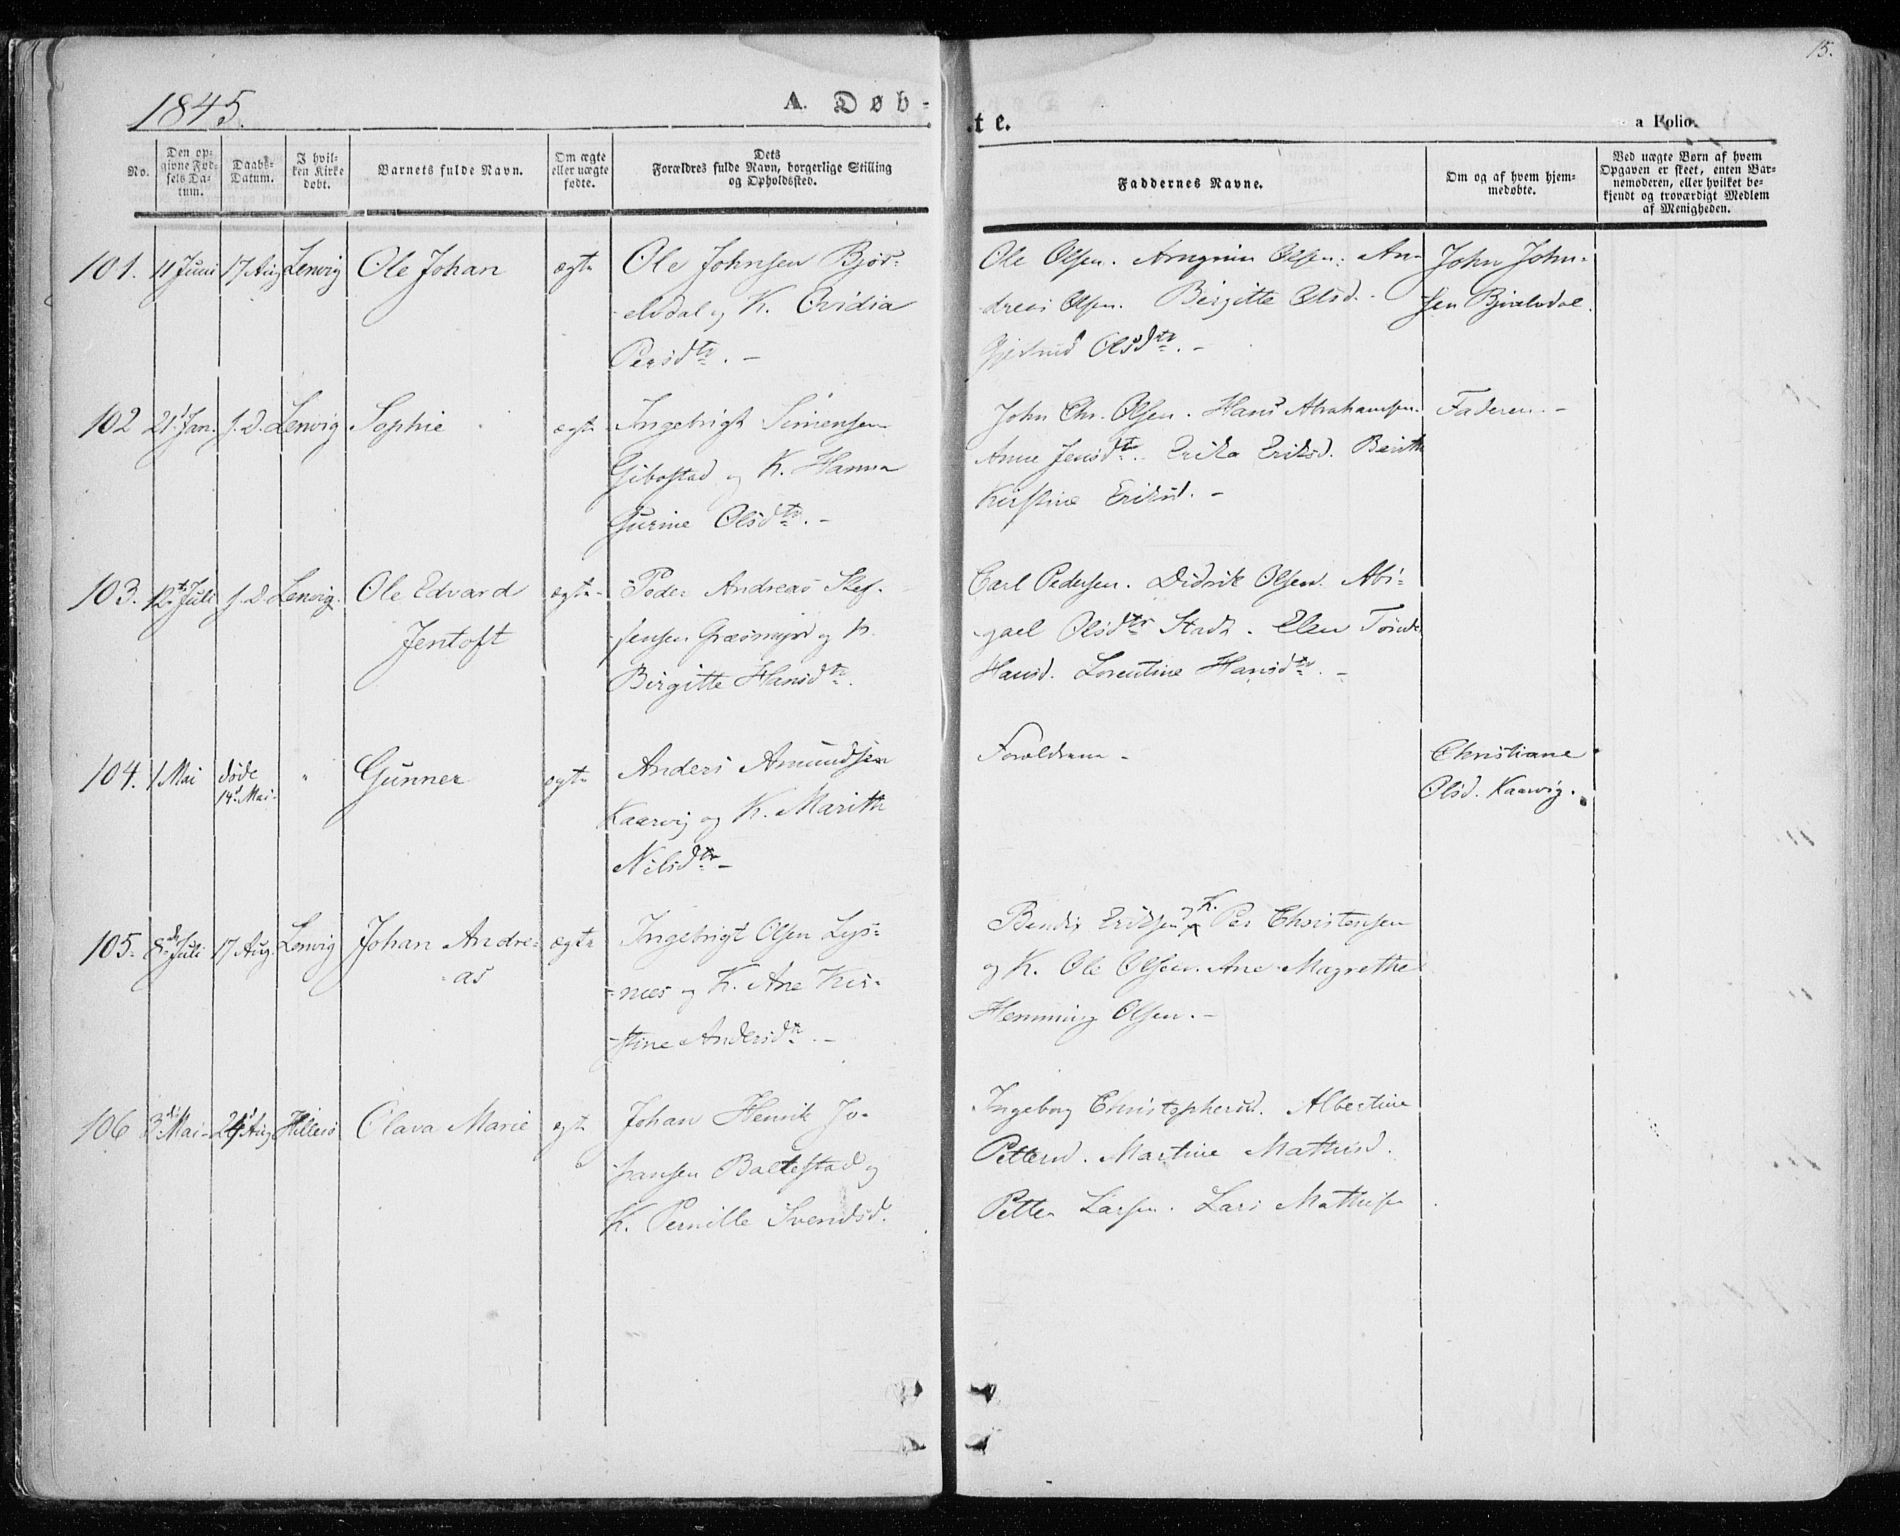 15.
1845.
A. Døb-
te.
a Folio.
No.
Den op-
givne Fød-
sels Da-
tum.
Daabs-
Datum.
I hvil-
ken Kirke
døbt.
Barnets fulde Navn.
Om ægte
eller uægte
fødte.
Dets
Forældres fulde Navn, borgerlige Stilling
og Opholdssted.
Faddernes Navne.
Om og af hvem hjem-
medøbte.
Ved uægte Børn af hvem
Opgaven er skeet, enten Bar-
nemoderen, eller hvilket be-
kjendt og troværdigt Medlem
af Menigheden.
101. 11 Juni 17 Aug Lenvig Ole Johan ægte
Ole Johnsen Bjor-
elvdal og K. Ovidia
Persdtr. -
Ole Olsen. Arngrim Olsen. An-
dreas Olsen. Birgitte Olsd. -
Gjertrud Olsdtr. -
John John-
sen Bjorelvdal.
102 21 Jan. s. D. Lenvig Sophie ægte
Ingebrigt Simensen
Gibostad og K. Hanna
Gurine Olsdtr. -
John Chr. Olsen. Hans Abrahamsen.
Anne Jensdtr. Erika Eriksd. Berith
Kirstine Eriksd. -
Faderen. -
103. 12te Juli s. D. Lenvig. Ole Edvard
Jentoft
ægte
Peder Andreas Stef-
fensen Græsmyr og K.
Birgitte Hansdtr.
Carl Pedersen. Didrik Olsen. Abi-
gael Olsdtr Stadt. Elen
Hansd. Lorentine Hansdtr. -
104. 1 Mai døde
14d Mai
" Gunner ægte
Anders Amundsen
Kaarvig og K. Marith
Nilsdtr -
Forældrene -
Christiane
Olsd. Kaarvig.
105. 8de Juli 17 Aug. Lenvig Johan Andre-
as
ægte
Ingebrigt Olsen Lys-
næs og K. Ane Kir-
stine Andersdtr. -
Bendix Eriksen og K. Per Christensen
og K. Ole Olsen. Ane Magrethe
Hemming Olsen. -
106 3die Mai 24d Aug Hillesø Olava Marie ægte
Johan Henrik Jo-
hansen Baltestad og
K. Pernille Svendsd.
Ingeborg Christophersd. Albertine
Pettersd. Martine Mathisd.
Petter Larsen. Lars Mathisen